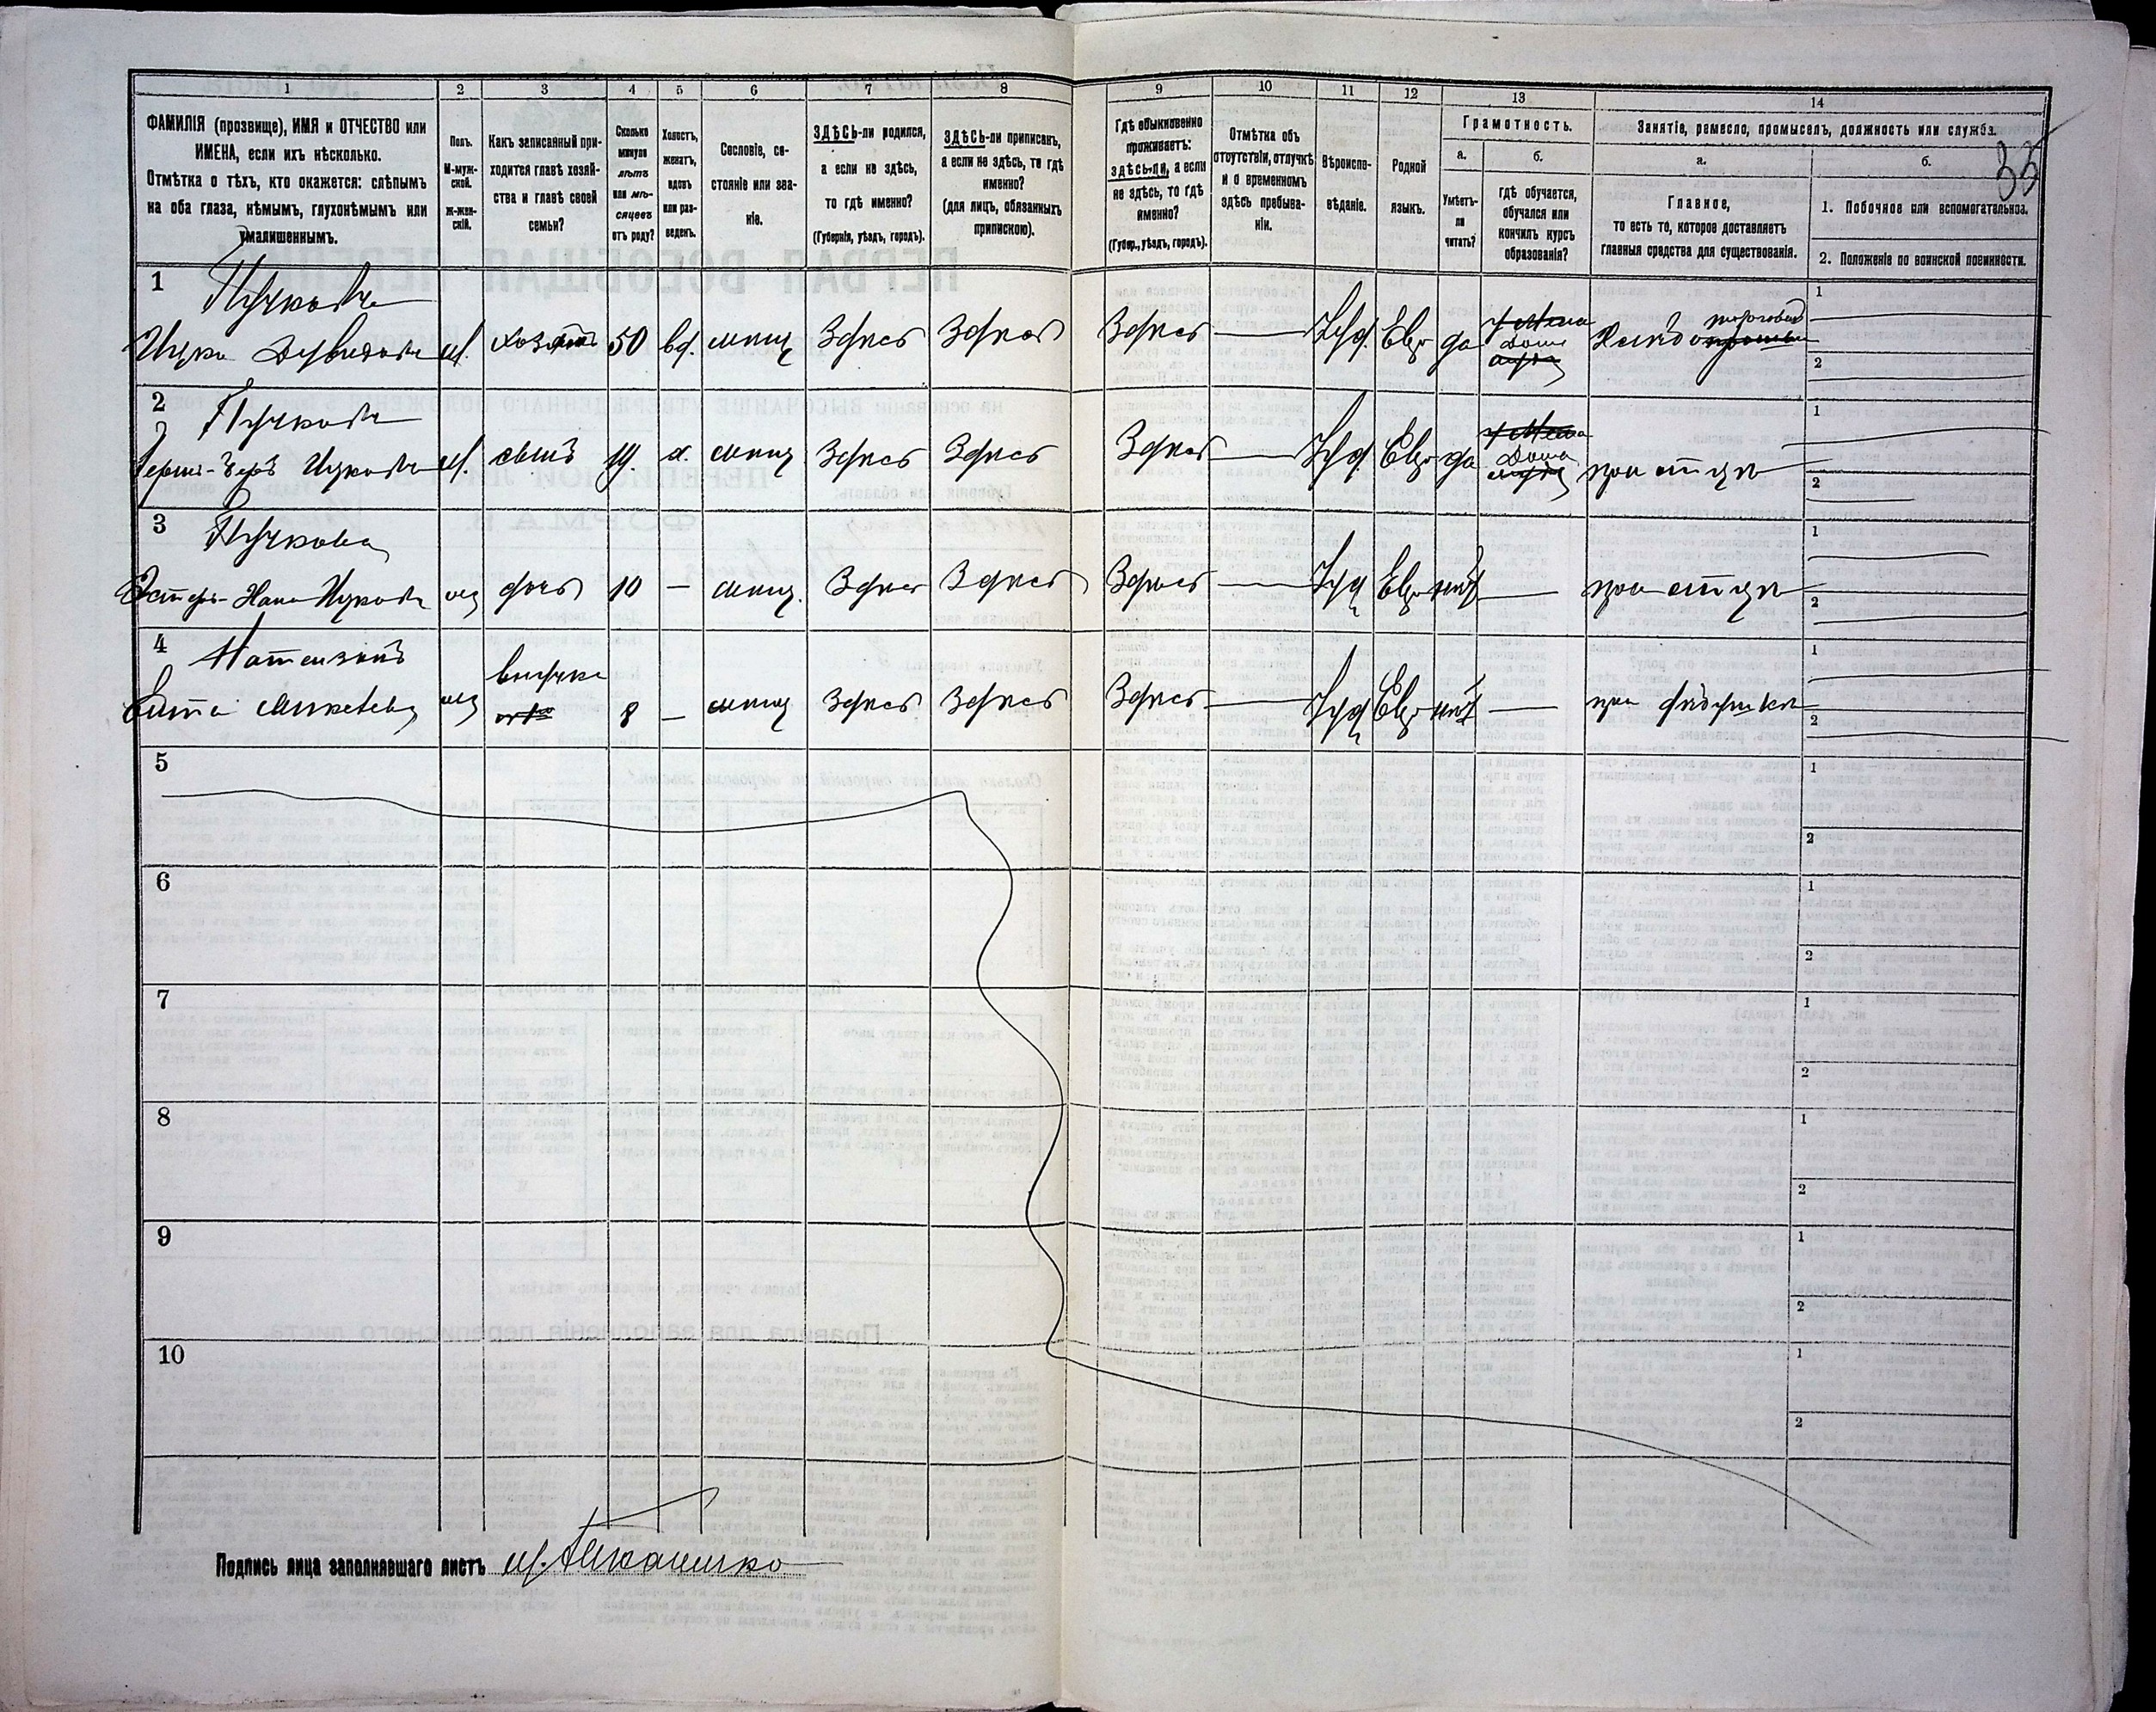 1 2 3 4 5 6 7 8 9 10 11 12 13 14
ФАМИЛІЯ (прозвище), ИМЯ и ОТЧЕСТВО или
ИМЕНА, если ихъ нѣсколько.
Отмѣтка о тѣхъ, кто окажется: слѣпымъ
на оба глаза, нѣмымъ, глухонѣмымъ или
умалишеннымъ.
Полъ.
М-муж-
ской.
Ж-жен-
скій.
Какъ записанный при-
ходится главѣ хозяй-
ства и главѣ своей
семьи?
Сколько
минуло
лѣтъ
или мѣ-
сяцевъ
отъ роду?
Холостъ,
женатъ,
вдовъ
или раз-
веденъ.
Сословіе, со-
стояніе или зва-
ніе.
ЗДѢСЬ-ли родился,
а если не здѣсь,
то гдѣ именно?
(Губернія, уѣздъ, городъ).
ЗДѢСЬ-ли приписанъ,
а если не здѣсь, то гдѣ
именно?
(для лицъ, обязанныхъ
припискою).
Гдѣ обыкновенно
проживаетъ:
здѣсь-ли, а если
не здѣсь, то гдѣ
именно?
(Губер., уѣздъ, городъ).
Отмѣтка объ
отсутствіи, отлучкѣ
и о временномъ
здѣсь пребыва-
ніи.
Вѣроиспо-
вѣданіе.
Родной
языкъ.
Грамотность.
а.
Умѣетъ-
ли
читать?
б.
гдѣ обучается,
обучался или
кончилъ курсъ
образованія?
Занятіе, ремесло, промыселъ, должность или служба.
а.
Главное,
то есть то, которое доставляетъ
главныя средства для существованія.
б.
33
1. Побочное или вспомогательное.
2. Положеніе по воинской повинности.
1
Пучковъ
Ицко м. хозяинъ 50 вд. мѣщ Здѣсь Здѣсь Здѣсь Іуд. Евр да
Дома
1
2
2
Пучковъ
Герш-Беръ Ицковъ м. сынъ 19. х. мѣщ Здѣсь Здѣсь Здѣсь Іуд. Евр да
Дома
при отцѣ
1
2
3
Пучкова
Эстеръ-Хана Ицкова ж дочь 10 — мѣщ. Здѣсь Здѣсь Здѣсь Іуд Евр нѣтъ — при отцѣ
1
2
4
внучка
ж 8 — мѣщ Здѣсь Здѣсь Здѣсь Іуд Евр нѣтъ — при дѣдушкѣ
1
2
5
1
2
6
1
2
7
1
2
8
1
2
9
1
2
10
1
2
Подпись лица заполнявшаго листъ